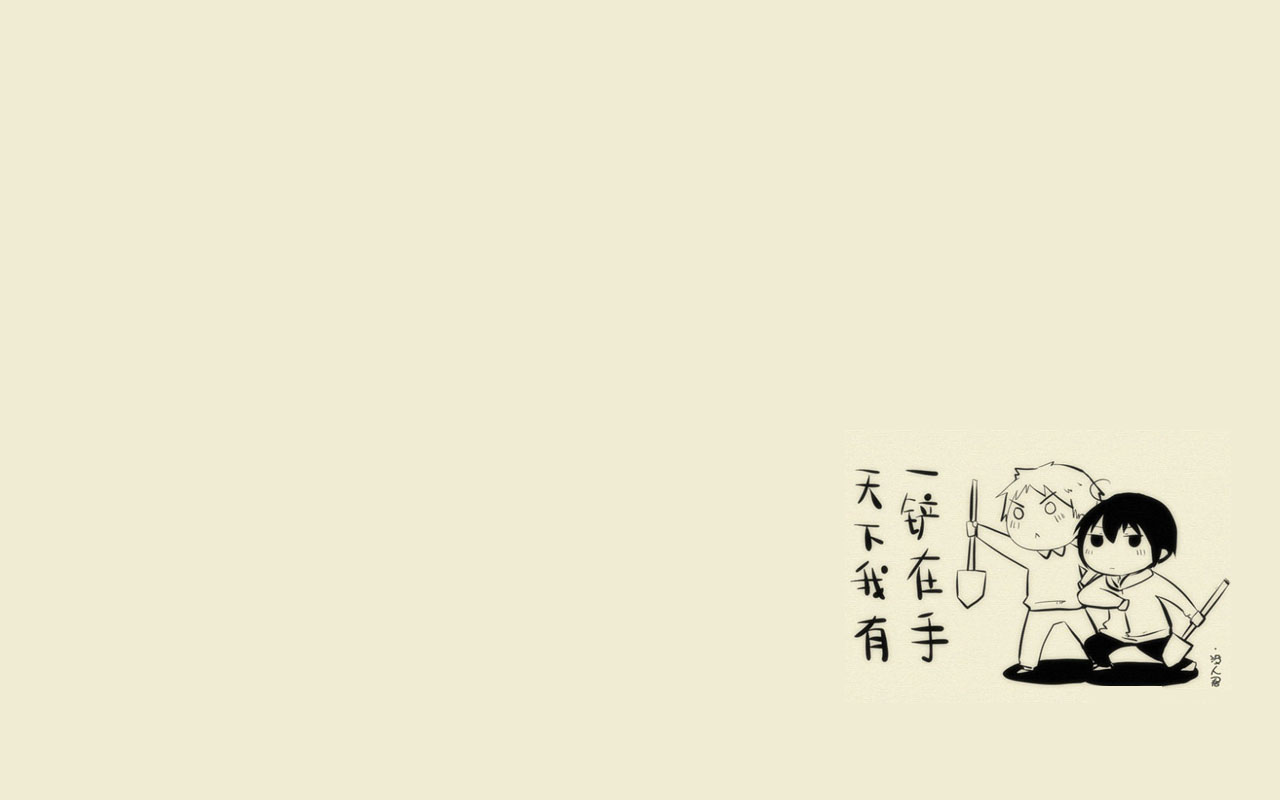 一铲在手
天下我有